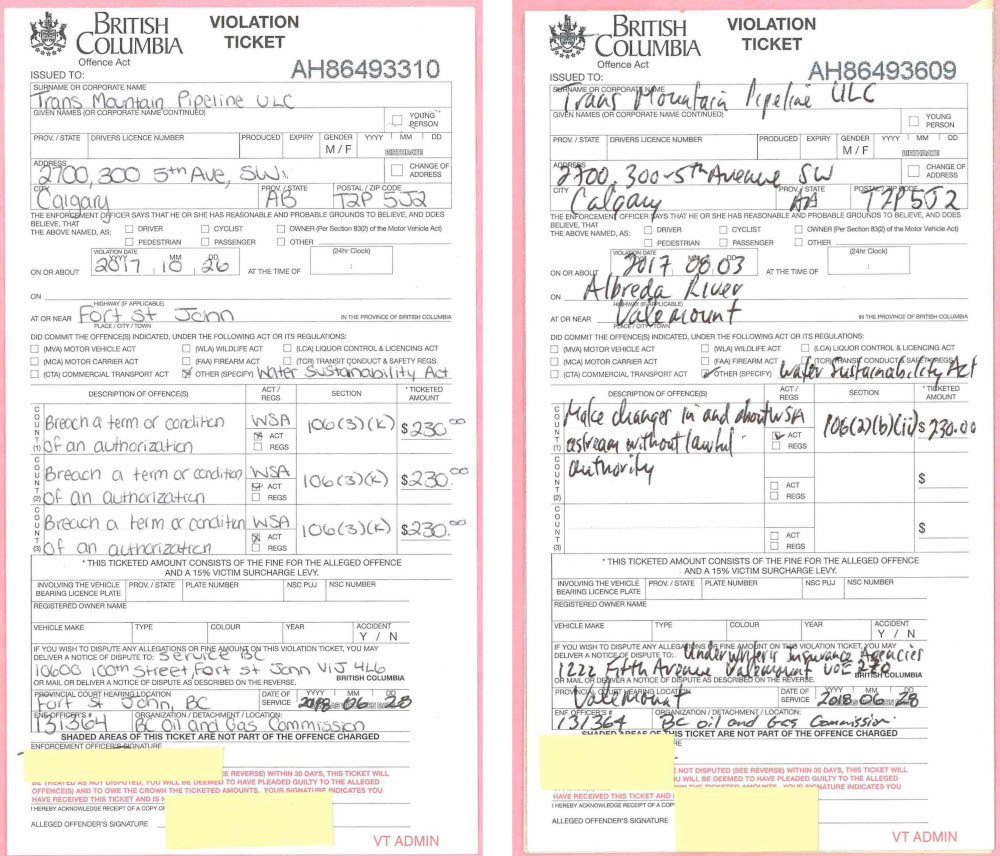 BRITISH COLUMBIA
VIOLATION TICKET
Offence Act
ISSUED TO:
AH86493310
SURNAME OR CORPORATE NAME
Trans Mountain Pipeline ULC
GIVEN NAMES (OR CORPORATE NAME CONTINUED)
YOUNG PERSON
PROV. / STATE DRIVERS LICENCE NUMBER PRODUCED EXPIRY GENDER YYYY MM DD
M / F BIRTHDATE
ADDRESS
2700, 300 5th Ave, SW.
CHANGE OF ADDRESS
CITY PROV. / STATE POSTAL / ZIP CODE
Calgary AB T2P 5J2
THE ENFORCEMENT OFFICER SAYS THAT HE OR SHE HAS REASONABLE AND PROBABLE GROUNDS TO BELIEVE, AND DOES
BELIEVE, THAT
THE ABOVE NAMED, AS: DRIVER CYCLIST OWNER (Per Section 83(2) of the Motor Vehicle Act)
PEDESTRIAN PASSENGER OTHER
VIOLATION DATE (24hr Clock)
YYYY MM DD
ON OR ABOUT 2017 10 26 AT THE TIME OF :
ON
HIGHWAY (IF APPLICABLE)
AT OR NEAR Fort St John IN THE PROVINCE OF BRITISH COLUMBIA
PLACE / CITY / TOWN
DID COMMIT THE OFFENCE(S) INDICATED, UNDER THE FOLLOWING ACT OR ITS REGULATIONS:
(MVA) MOTOR VEHICLE ACT (WLA) WILDLIFE ACT (LCA) LIQUOR CONTROL & LICENCING ACT
(MCA) MOTOR CARRIER ACT (FAA) FIREARM ACT (TCR) TRANSIT CONDUCT & SAFETY REGS.
(CTA) COMMERCIAL TRANSPORT ACT OTHER (SPECIFY) Water Sustainability Act
DESCRIPTION OF OFFENCE(S) ACT / REGS SECTION * TICKETED AMOUNT
COUNT (1) Breach a term or condition WSA 106(3)(k) $230.00
of an authorization ACT
REGS
COUNT (2) Breach a term or condition WSA 106(3)(k) $230.00
of an authorization ACT
REGS
COUNT (3) Breach a term or condition WSA 106(3)(k) $230.00
of an authorization ACT
REGS
* THIS TICKETED AMOUNT CONSISTS OF THE FINE FOR THE ALLEGED OFFENCE
AND A 15% VICTIM SURCHARGE LEVY.
INVOLVING THE VEHICLE BEARING LICENCE PLATE PROV. / STATE PLATE NUMBER NSC PUJ NSC NUMBER
REGISTERED OWNER NAME
VEHICLE MAKE TYPE COLOUR YEAR ACCIDENT
Y / N
IF YOU WISH TO DISPUTE ANY ALLEGATIONS OR FINE AMOUNT ON THIS VIOLATION TICKET, YOU MAY
DELIVER A NOTICE OF DISPUTE TO: Service BC
10600 100th Street, Fort St John V1J 4L6
BRITISH COLUMBIA
OR MAIL OR DELIVER A NOTICE OF DISPUTE AS DESCRIBED ON THE REVERSE.
PROVINCIAL COURT HEARING LOCATION DATE OF SERVICE YYYY MM DD
Fort St John, BC 2018 06 28
ENF. OFFICER'S # ORGANIZATION / DETACHMENT / LOCATION:
131364 BC Oil and Gas Commission
SHADED AREAS OF THIS TICKET ARE NOT PART OF THE OFFENCE CHARGED
ENFORCEMENT OFFICER'S SIGNATURE
E REVERSE) WITHIN 30 DAYS, THIS TICKET WILL
BE TREATED AS NOT DISPUTED, YOU WILL BE DEEMED TO HAVE PLEADED GUILTY TO THE ALLEGED
OFFENCE(S) AND TO OWE THE CROWN THE TICKETED AMOUNTS. YOUR SIGNATURE INDICATES YOU
HAVE RECEIVED THIS TICKET AND IS N
I HEREBY ACKNOWLEDGE RECEIPT OF A COPY OF
ALLEGED OFFENDER'S SIGNATURE
VT ADMIN
BRITISH COLUMBIA
VIOLATION TICKET
Offence Act
ISSUED TO:
AH86493609
SURNAME OR CORPORATE NAME
Trans Mountain Pipeline ULC
GIVEN NAMES (OR CORPORATE NAME CONTINUED)
YOUNG PERSON
PROV. / STATE DRIVERS LICENCE NUMBER PRODUCED EXPIRY GENDER YYYY MM DD
M / F BIRTHDATE
ADDRESS
2700, 300-5th Avenue SW
CHANGE OF ADDRESS
CITY PROV. / STATE POSTAL / ZIP CODE
Calgary T2P 5J2
THE ENFORCEMENT OFFICER SAYS THAT HE OR SHE HAS REASONABLE AND PROBABLE GROUNDS TO BELIEVE, AND DOES
BELIEVE, THAT
THE ABOVE NAMED, AS: DRIVER CYCLIST OWNER (Per Section 83(2) of the Motor Vehicle Act)
PEDESTRIAN PASSENGER OTHER
VIOLATION DATE (24hr Clock)
YYYY MM DD
ON OR ABOUT 2017 08 03 AT THE TIME OF :
ON Albreda River
HIGHWAY (IF APPLICABLE)
AT OR NEAR Valemount IN THE PROVINCE OF BRITISH COLUMBIA
PLACE / CITY / TOWN
DID COMMIT THE OFFENCE(S) INDICATED, UNDER THE FOLLOWING ACT OR ITS REGULATIONS:
(MVA) MOTOR VEHICLE ACT (WLA) WILDLIFE ACT (LCA) LIQUOR CONTROL & LICENCING ACT
(MCA) MOTOR CARRIER ACT (FAA) FIREARM ACT (TCR) TRANSIT CONDUCT & SAFETY REGS.
(CTA) COMMERCIAL TRANSPORT ACT OTHER (SPECIFY) Water Sustainability Act
DESCRIPTION OF OFFENCE(S) ACT / REGS SECTION * TICKETED AMOUNT
COUNT (1) Make changes in and about WSA 106(2)(b)(ii) $230.00
a stream without lawful ACT
REGS
COUNT (2) authority $
ACT
REGS
COUNT (3) $
ACT
REGS
* THIS TICKETED AMOUNT CONSISTS OF THE FINE FOR THE ALLEGED OFFENCE
AND A 15% VICTIM SURCHARGE LEVY.
INVOLVING THE VEHICLE BEARING LICENCE PLATE PROV. / STATE PLATE NUMBER NSC PUJ NSC NUMBER
REGISTERED OWNER NAME
VEHICLE MAKE TYPE COLOUR YEAR ACCIDENT
Y / N
IF YOU WISH TO DISPUTE ANY ALLEGATIONS OR FINE AMOUNT ON THIS VIOLATION TICKET, YOU MAY
DELIVER A NOTICE OF DISPUTE TO: Underwriters Insurance Agencies
1222 Fifth Avenue Valemount V0E 2Z0
BRITISH COLUMBIA
OR MAIL OR DELIVER A NOTICE OF DISPUTE AS DESCRIBED ON THE REVERSE.
PROVINCIAL COURT HEARING LOCATION DATE OF SERVICE YYYY MM DD
Valemount 2018 06 28
ENF. OFFICER'S # ORGANIZATION / DETACHMENT / LOCATION:
131364 BC oil and Gas Commission
SHADED AREAS OF THIS TICKET ARE NOT PART OF THE OFFENCE CHARGED
RE
NOT DISPUTED (SEE REVERSE) WITHIN 30 DAYS, THIS TICKET WILL
U WILL BE DEEMED TO HAVE PLEADED GUILTY TO THE ALLEGED
OFFENCE(S) AND TO OWE THE CROWN THE TICKETED AMOUNTS. YOUR SIGNATURE INDICATES YOU
HAVE RECEIVED THIS TICKET AND
I HEREBY ACKNOWLEDGE RECEIPT OF A COP
ALLEGED OFFENDER'S SIGNATURE
VT ADMIN